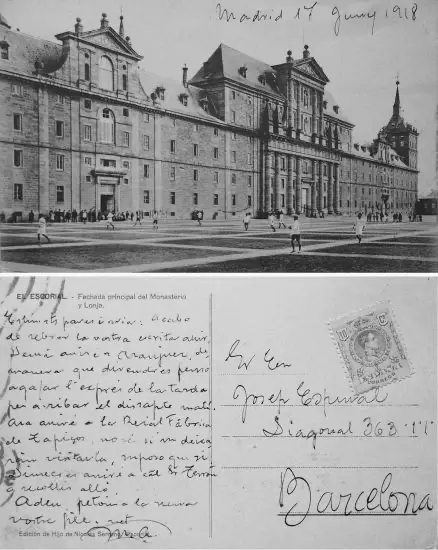 Madrid 17 Juny 1918
EL ESCORIAL. - Fachada principal del Monasterio
y Lonja.
Estimats pares i avia: Acabo
de rebrer la vostra escrita ahir.
Demá aniré a Aranjuez, de
manera que divendres penso
agafar l'exprés de la tarda
per arribar el disapte matí.
Ara aniré a la Real Fábrica
de Tapiços, no sé si m deixa
rán visitarla, suposo que si.
Dimecres aniré a cal Sr
y recullir allò.
Adeu, petons a la
vostre fill,
Edición de Hijo de Nicolás Serrano
Sr En
Josep Espinal
Diagonal 363 1º 1ª
Barcelona